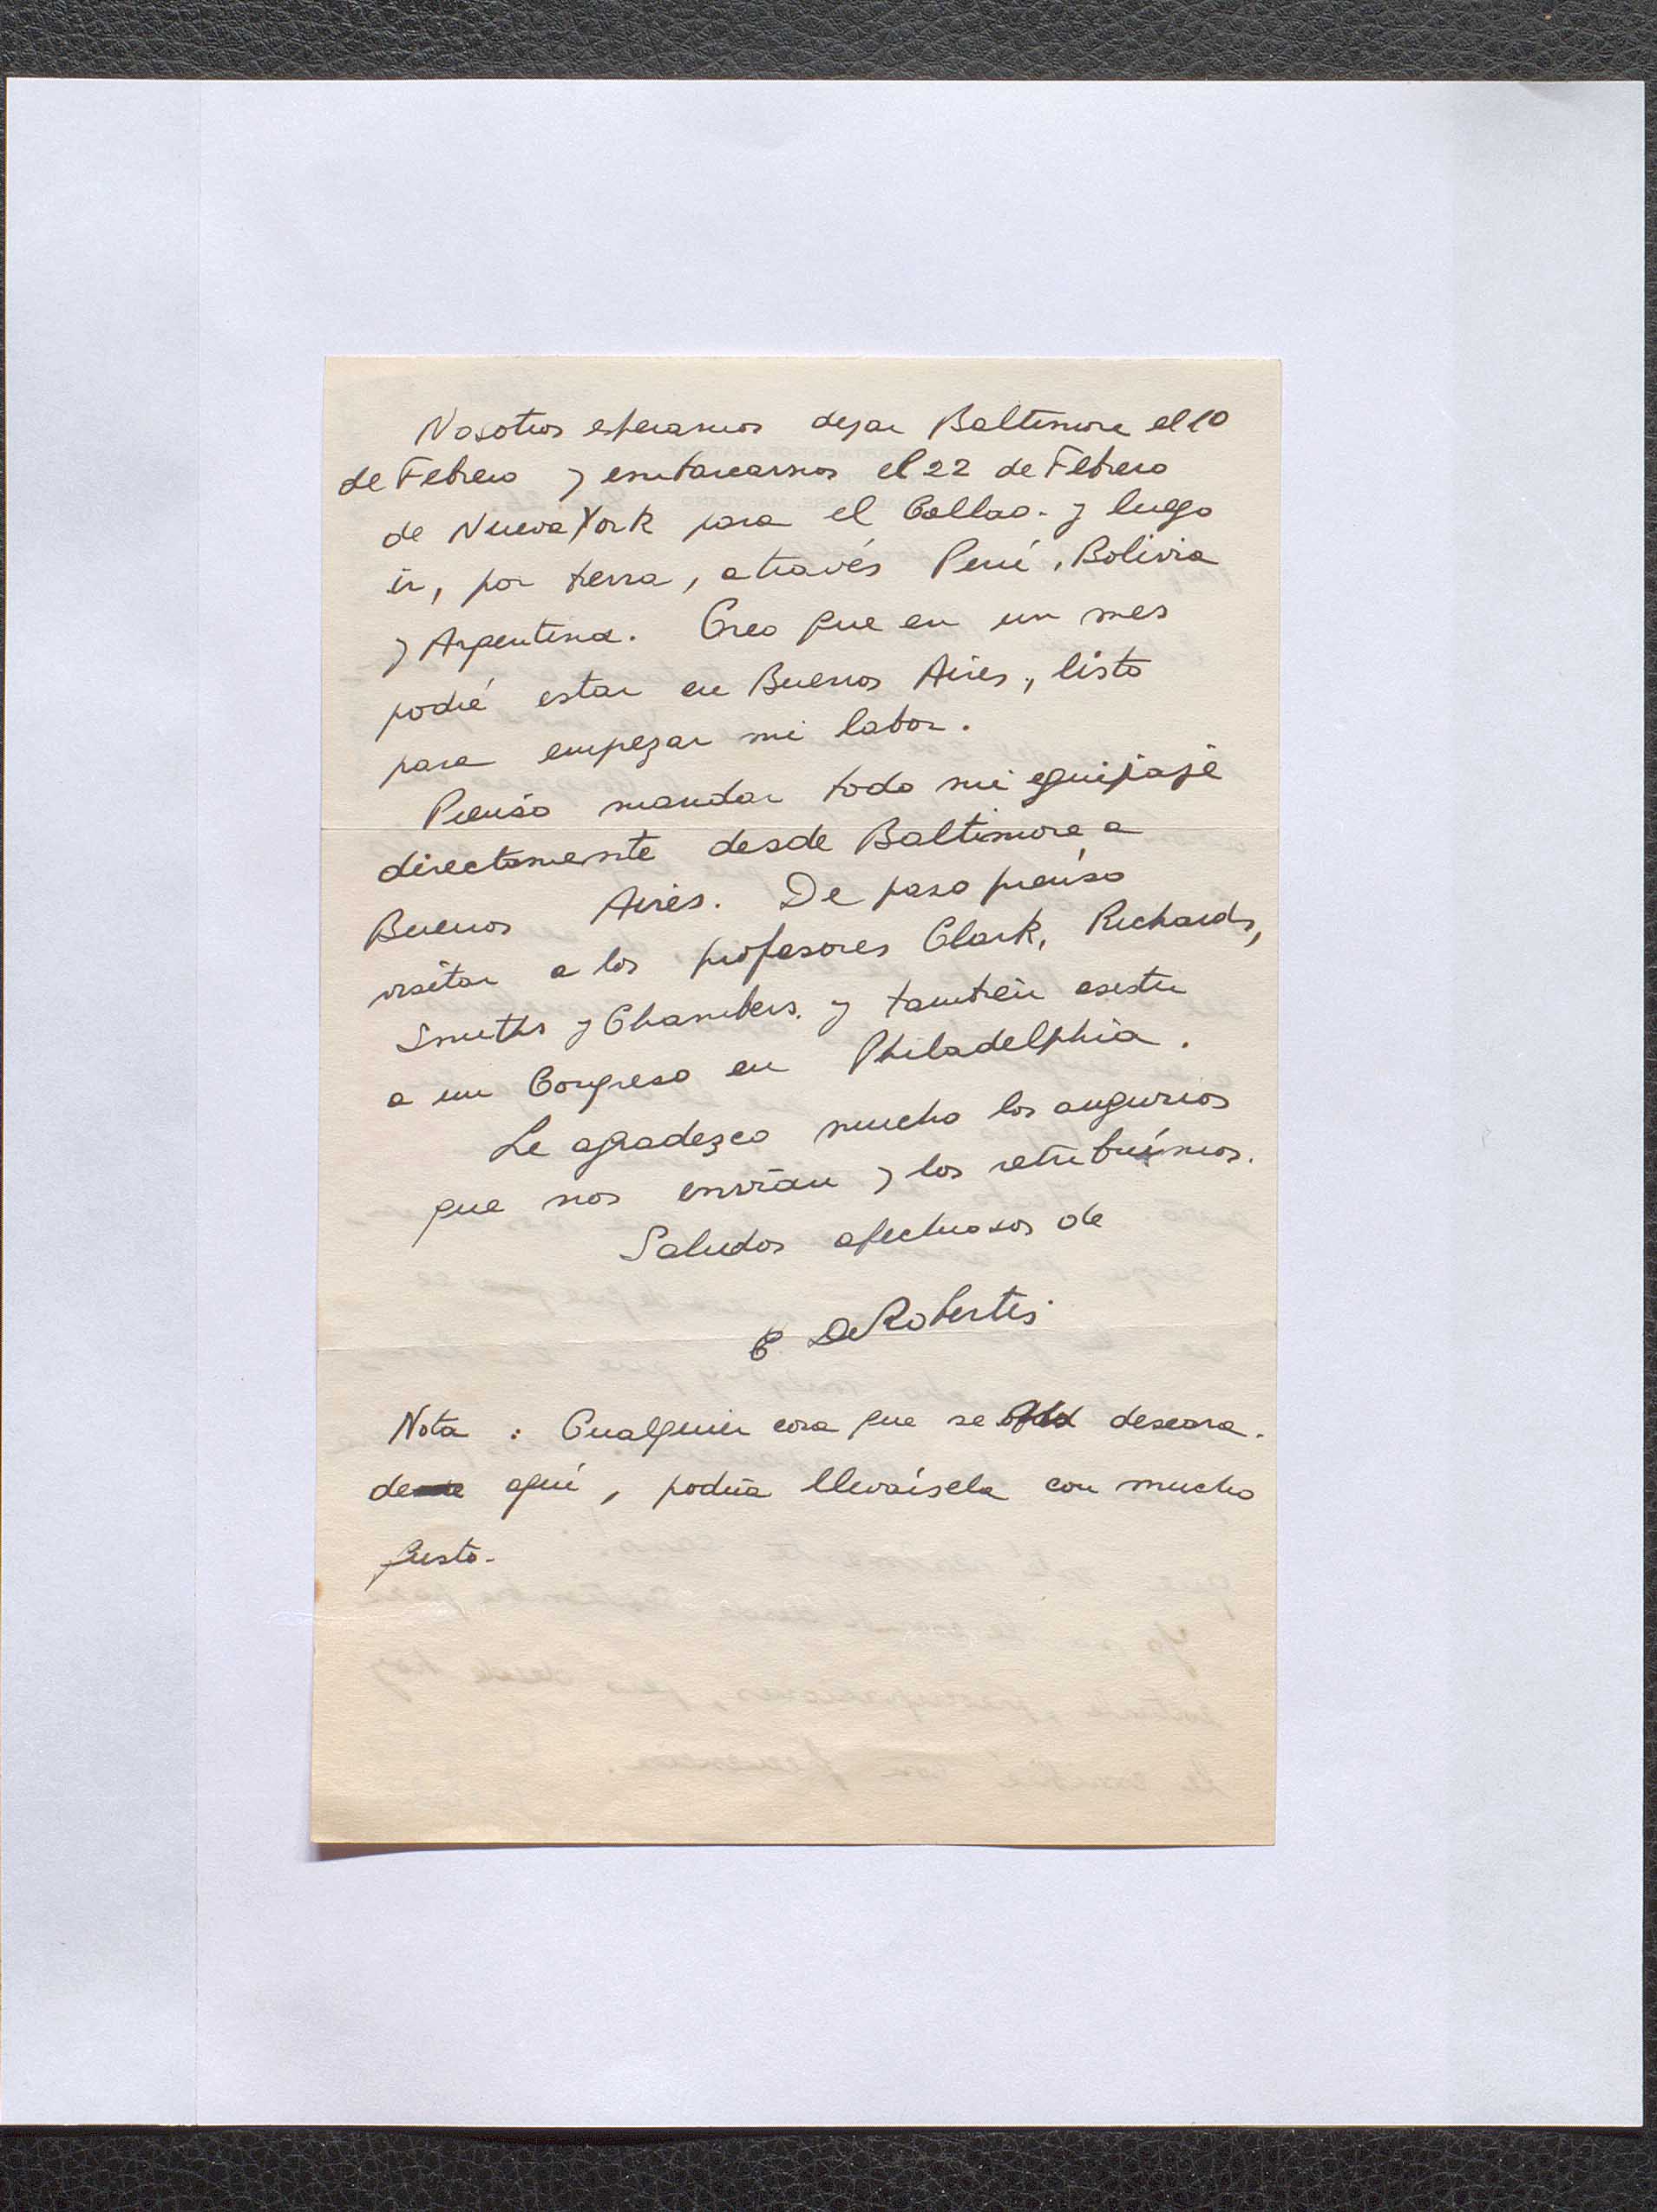 Nosotros esperamos dejar Baltimore el 10
de Febrero y embarcarnos el 22 de Febrero
de Nueva York para el Callao. y luego
ir, por tierra, através Perú, Bolivia
y Argentina. Creo que en un mes
podré estar en Buenos Aires, listo
para empezar mi labor.
Pienso mandar todo mi equipaje
directamente desde Baltimore a
Buenos Aires. De paso pienso
visitar a los profesores Clark, Richards,
Smiths y Chambers. y también asistir
a un Congreso en Philadelphia.
Le agradezco mucho los augurios
que nos envían y los retribuímos.
Saludos afectuosos de
E DeRobertis
Nota : Cualquier cosa que se deseara.
de aquí, podría llevársela con mucho
gusto.